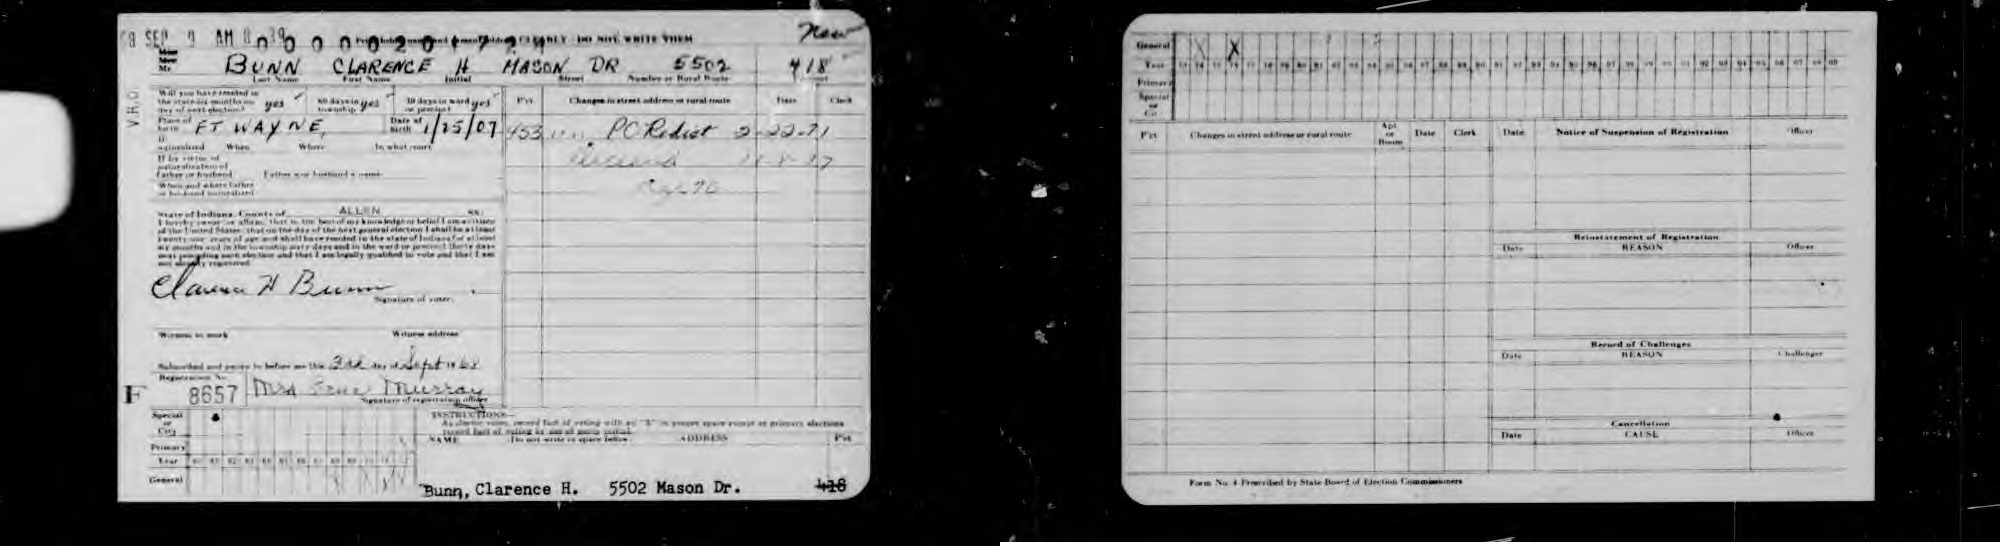 68 SEP 9 AM 8 39
0 0 0 0 0 2 0 1 7 2 4
CLEARLY DO NOT WRITE THEM
New
Miss
Mrs.
Mr. BUNN CLARENCE H MASON DR 5502 418
Last Name First Name Initial Street Number or Rural Route
V.R.O.
Will you have resided in
the state six months on yes 60 days in yes 30 days in ward yes
day of next election? township? or precinct
Pct Changes in street address or rural route Date Clerk
Place of FT WAYNE, Date of 1/25/07
birth birth
453 PC Redist 2-22-71
If
naturalized When Where In what court
If by virtue of
naturalization of
Father or husband Father's or husband's name
Age 70
When and where father
or husband naturalized
State of Indiana, County of ALLEN SS:
I hereby swear or affirm, that to the best of my knowledge or belief I am a citizen
of the United States; that on the day of the next general election I shall be at least
twenty-one years of age and shall have resided in the state of Indiana for at least
six months and in the township sixty days and in the ward or precinct thirty days
next preceding such election and that I am legally qualified to vote and that I am
not already registered
Clarence H Bunn
Signature of voter.
Witness to mark Witness address
Subscribed and sworn to before me this 3rd day of Sept 19 68
Registration No.
F 8657 Mrs Murray
Signature of registration officer
Special
or
City
Primary
Year
General
INSTRUCTIONS—
NAME (Do not write in space below. ADDRESS Pct
Bunn, Clarence H. 5502 Mason Dr. 418
General X X
Year
Primary
Special
or
City
Pct Changes in street address or rural route Apt. or Room Date Clerk Date Notice of Suspension of Registration Officer
Reinstatement of Registration
Date REASON Officer
Record of Challenges
Date REASON Challenger
Cancellation
Date CAUSE Officer
Form No. 4 Prescribed by State Board of Election Commissioners